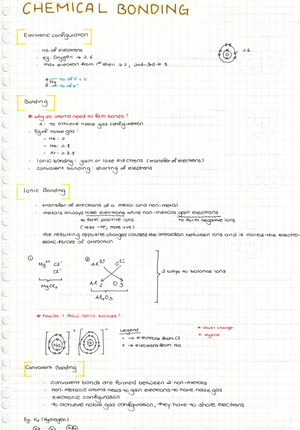 CHEMICAL BONDING
Electronic configuration
- no. of electrons
- eg: Oxygen → 2.6
2.6
- max electron from 1st shell → 2, 2nd-3rd → 8
Bonding
* why do atoms need to form bonds?
A: to achieve noble gas configuration
- Eg of noble gas:
- He: 2
- Ne: 2.8
- Ar: 2.8.8
- ionic bonding: gain or lose electrons (transfer of electrons)
- covalent bonding: sharing of electrons
Ionic Bonding
- transfer of electrons of a metal and non-metal
- metals always lose electrons while non-metals gain electrons
to form positive ions
to form negative ions
(less -ve, more +ve)
- the resulting opposite charges causes the attraction between ions and is called the electro-
static forces of attraction
① Mg²⁺ Cl⁻
Cl⁻
MgCl₂
② Al³⁺ O²⁻
Al 2 O 3
Al₂O₃
2 ways to balance ions
* how do I draw ionic bonds?
Na
Cl
Legend
• → electrons from Cl
x → electrons from Na
* state charge
* legend
Covalent Bonding
- covalent bonds are formed between 2 non-metals
- non-metallic atoms need to gain electrons to have noble gas
electronic configuration
- to achieve noble gas configuration, they have to share electrons
Eg: H₂ (Hydrogen)